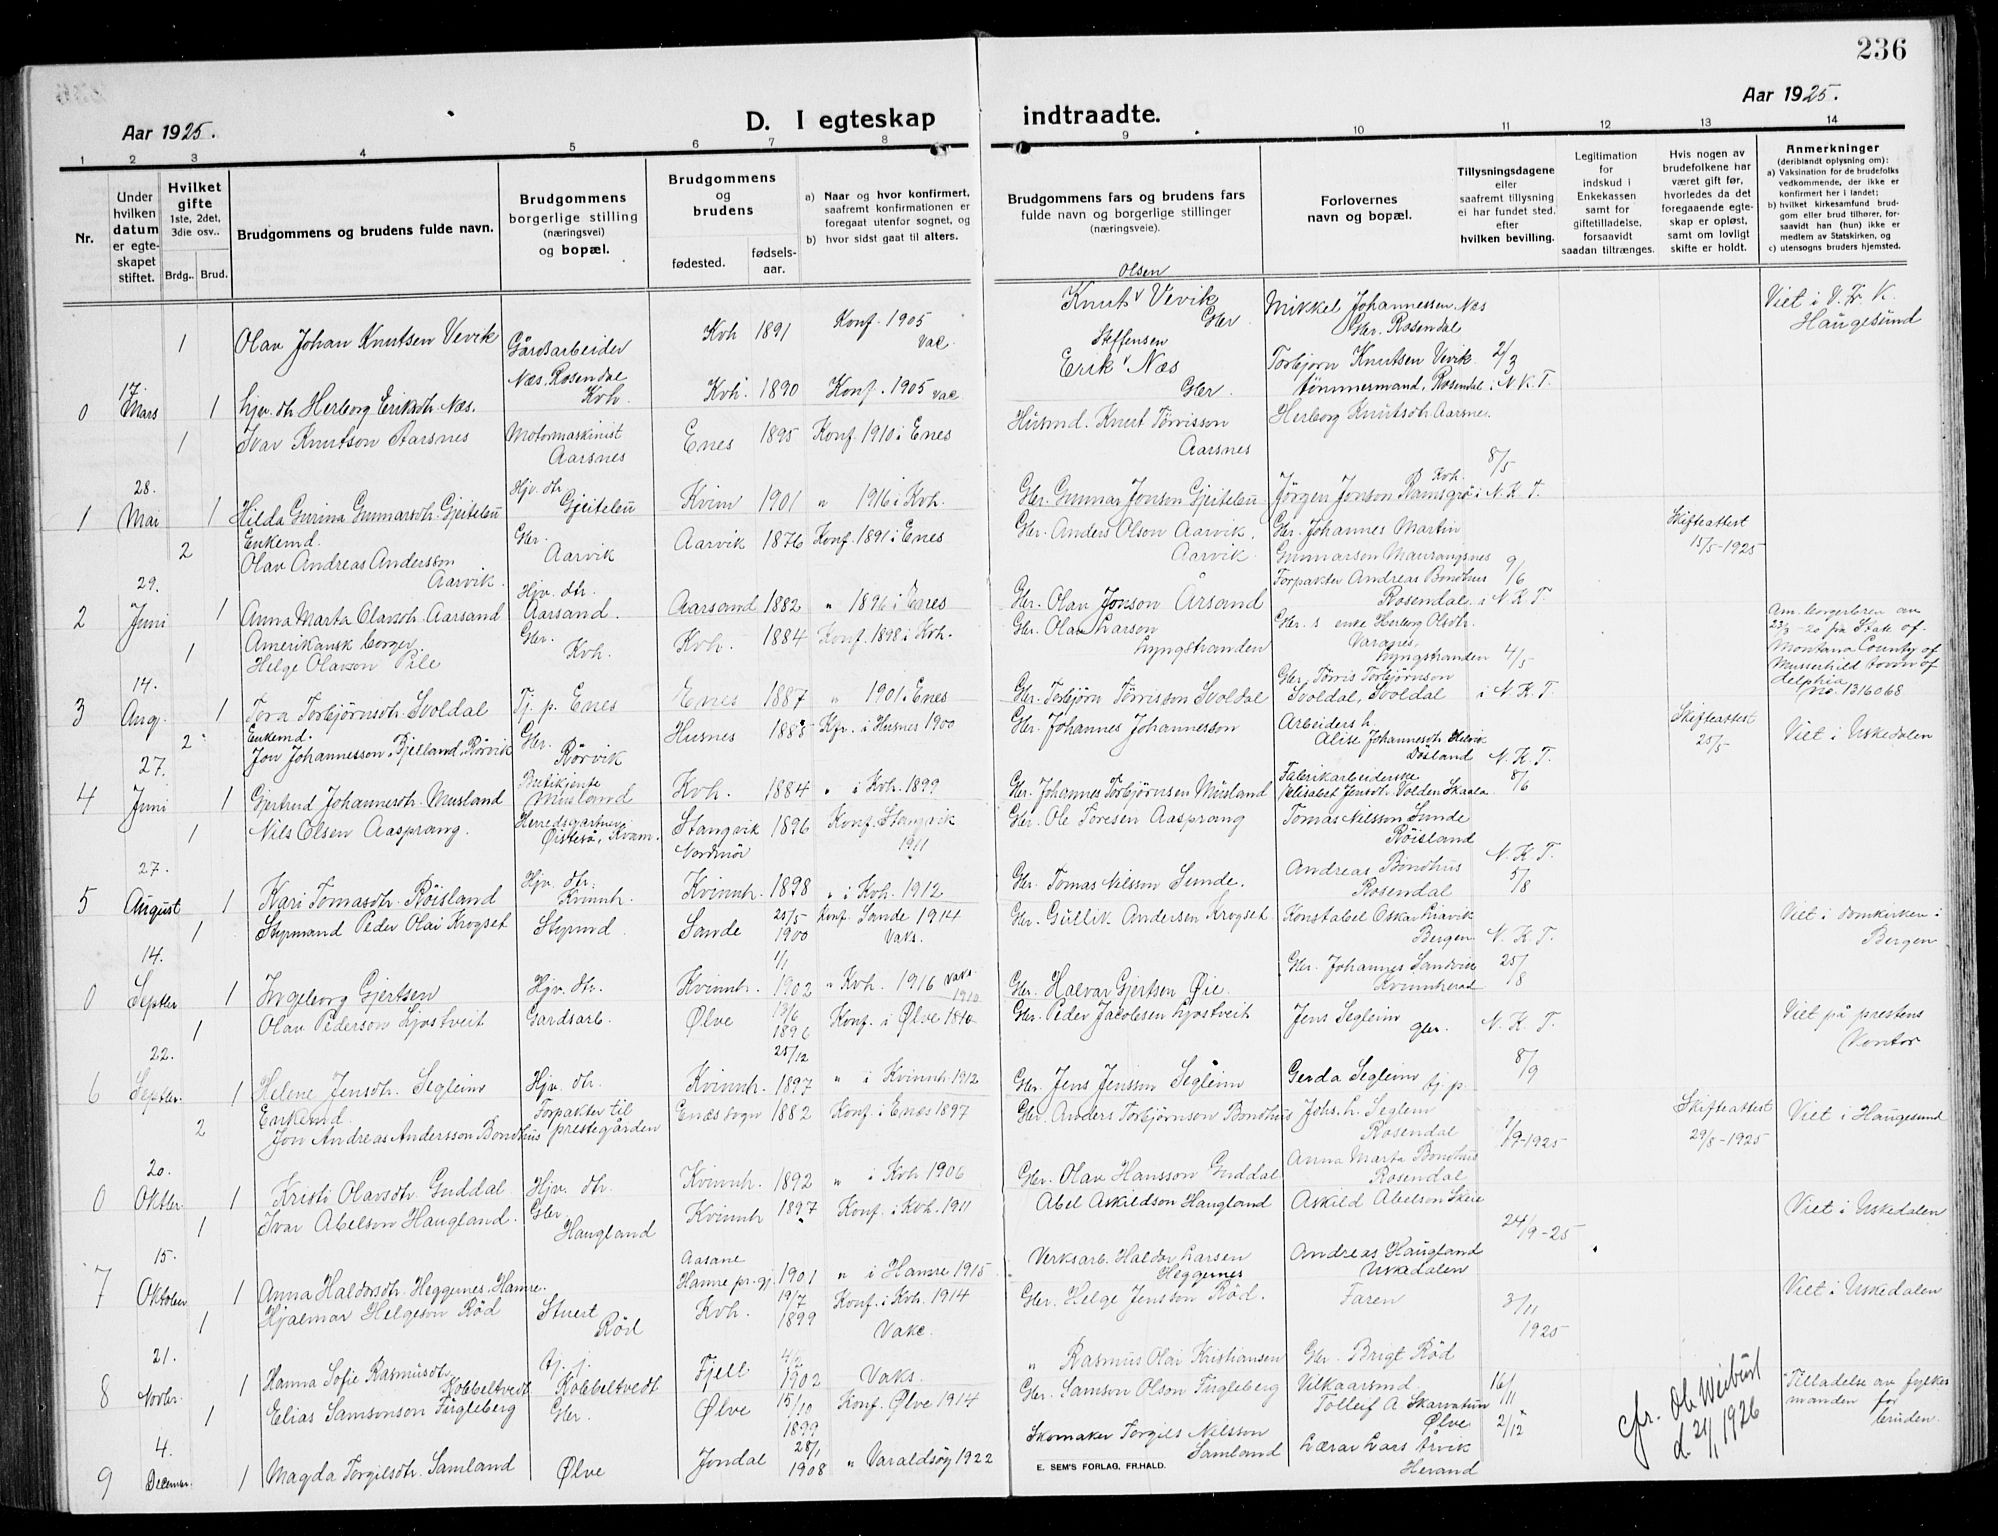 236
Aar 1925.
D. I egteskap indtraadte.
Aar 1925.
1 2 3 4 5 6 7 8 9 10 11 12 13 14
Nr.
Under hvilken datum er egteskapet stiftet.
Hvilket gifte 1ste, 2det, 3die osv..
Brdg.. Brud.
Brudgommens og brudens fulde navn.
Brudgommens borgerlige stilling (næringsvei) og bopæl.
Brudgommens og brudens
fødested. fødselsaar.
a) Naar og hvor konfirmert, saafremt konfirmationen er foregaat utenfor sognet, og
b) hvor sidst gaat til alters.
Brudgommens fars og brudens fars fulde navn og borgerlige stillinger (næringsveie).
Forlovernes navn og bopæl.
Tillysningsdagene eller saafremt tillysning ei har fundet sted, efter hvilken bevilling.
Legitimation for indskud i Enkekassen samt for giftetilladelse, forsaavidt saadan tiltrænges.
Hvis nogen av brudefolkene har været gift før, hvorledes da det foregaaende egteskap er opløst, samt om lovligt skifte er holdt.
Anmerkninger (deriblandt oplysning om):
a) Vaksination for de brudefolks vedkommende, der ikke er konfirmert her i landet;
b) hvilket kirkesamfund brudgom eller brud tilhører, forsaavidt han (hun) ikke er medlem av Statskirken, og
c) utensogns bruders hjemsted.
1 Olav Johan Knutsen Vevik Gårdsarbeider Næs. Rosendal Kvh. Kvh 1891 Konf. 1905 vac. Knut Olsen Vevik Gbr Mikkel Johannessen Næs Gbr. Rosendal Viet i V. Fr. K. Haugesund
0 17. Mars 1 hjv. dtr Herborg Eriksdtr. Næs. Kvh. 1890 Konf. 1905 vac Erik Steffensen Næs Gbr. Torbjørn Knutsen Vevik tømmermand, Rosendal 2/3 i N.K.T.
1 Ivar Knutson Aarsnes Motormaskinist Aarsnes Enes 1895 Konf. 1910 i Enes Husmd. Knut Tørrisson Aarsnes Herborg Knutsdtr Aarsnes.
1 28. Mai 1 Hilda Gurina Gunnarsdtr. Gjeiteleu Hjv. dtr Gjeiteleu Kvinn 1901 " 1916 i Kvh. Gbr. Gunnar Jonson Gjeiteleu Jörgen Jonson Ramsgrø Kvh. 8/5 i N.K.T.
2 Enkemd. Olav Andreas Andersson Aarvik Gbr. Aarvik Aarvik 1876 Konf. 1891 i Enes Gbr. Anders Olson Aarvik. Aarvik Gbr. Johannes Martin Gunnarsen Maurangsnes Skifteattest 15/5-1925
2 29. Juni 1 Anna Marta Olavsdtr. Aarsand Hjv. dtr. Aarsand. Aarsand 1882 " 1896 i Enes Gbr. Olav Jonson Årsand Forpakter Andreas Bondhus Rosendal 9/6 i N.K.T.
1 Amerikansk borger. Helge Olavson Pile Gbr. Kvh. Kvh. 1884 Konf. 1898 i Kvh. Gbr. Olav Larson Lyngstranden Gbr. s enke Herborg Olsdtr. Varanes, Lyngstranden Am. borgerbrev av 23/3-20 fra State of Montana County of Musserhild town of delphia no. 1316068
3 14. Aug. 1 Tora Torbjørnsdtr. Svoldal Tj. p. Enes Enes 1887 " 1901. Enes Gbr. Torbjørn Tørrisson Svoldal Gbr. Tørris Torbjørnson Svoldal, Svoldal 4/5 i N.K.T.
2 Enkemd. Jon Johannesson Bjelland, Rørvik Gbr. Rørvik Husnes 1885 Kfr. i Husnes 1900 Gbr. Johannes Johannesson Arbeiders h. Alise Johannesdtr. Døsland Skifteattest 25/5 Viet i Uskedalen
4 27. Juni 1 Gjertrud Johannesdtr. Musland Butikjente Musland Kvh. 1884 " i Kvh. 1899 Gbr. Johannes Torbjørnsen Musland Fabrikarbeiderske Elisabet Jensdtr. Volden Skaala N.K.T. 8/6
1 Nils Olsen Aasprang. Herredsgartner, Øistesø, Kvam. Stangvik Nordmör 1896 Konf. Stangvik 1911 Gbr. Ole Toresen Aasprang Tomas Nilsson Sunde Röisland
5 27. August 1 Kari Tomasdtr. Röisland Hjv. dtr. Kvinnh. Kvinnh. 1898 " i Kvh. 1912 Gbr. Tomas Nilsson Sunde. Andreas Bondhus Rosendal N.K.T. 5/8
1 Styrmand Peder Olai Krogset Styrmd Sande 25/5 1900 Konf. Sande 1914 Vaks. Gbr. Gullik Andersen Krogset Konstabel Oskar Liavik Bergen Viet i Domkirken i Bergen
0 14. Septbr 1 Ingeborg Gjertsen Hjv. dtr. Kvinnh. 1/1 1902 " Kvh. 1916 vaks. 1910 Gbr. Halvar Gjertsen Øie. Gbr. Johannes Sandvik Kvinnherad N.K.T. 25/8
1 Olav Pederson Ljostveit Gardsarb. Ølve 13/6 1896 Konf. i Ølve 1910 Gbr. Peder Jacobsen Ljostveit Jens Segleim Gbr. Viet på prestens Kontor
6 22. Septbr. 1 Helene Jensdtr. Segleim Hjv. dtr. Kvinnh. 25/12 1897 " i Kvinnh. 1912 Gbr. Jens Jensson Segleim Gerda Segleim tj. p. N.K.T. 8/9
2 Enkemd. Jon Andreas Andersson Bondhus Forpakter til prestegården Enæs sogn 1882 Konf. i Enæs 1897 Gbr. Anders Torbjørnson Bondhus Johs. L. Seglem Rosendal 1/9-1925 Skifteattest 29/8-1925 Viet i Haugesund
0 20. Oktbr. 1 Kristi Olavsdtr. Guddal Hjv. dtr. Kvinnh. 1892 " i Kvh 1906 Gbr. Olav Hansson Guddal Anna Marta Bondhus Rosendal
1 Ivar Abelson Haugland. Gbr. Haugland Kvinnh 1897 Konf. i Kvh. 1911 Abel Askildson Haugland Askild Abelson Skeie Viet i Uskedalen
7 15. Oktober 1 Anna Haldorsdtr. Heggernes. Hamre. Aasane Hamre pr. gj. 1901 " i Hamre 1915 Verksarb. Haldor Larsen Heggernes Andreas Haugland Uskedalen 24/9-25
1 Hjalmar Helgeson Röd Stuert Röd Kvh. 19/7 1899 Konf. i Kvh. 1914 Vakc. Gbr. Helge Jensson Röd. Faren 3/11 1925 Viet i Uskedalen
8 21. Novbr. 1 Hanna Sofie Rasmusdtr. Kobbeltvedt tj. j. Kobbeltvedt Fjell 1902 Vaks. " Rasmus Olai Kristiansen Gbr. Brigt Röd
1 Elias Samsonson Fugleberg Gbr. Ølve 15/10 1899 Konf. Ølve 1914 Gbr. Samson Olson Fugleberg Vilkaarsmd Tolleif A Skarvatun Ølve 16/11 Tilladelse av fylkesmanden for bruden.
9 4. December 1 Magda Torgilsdtr. Samland Ølve Jondal 28/1 1908 " Varaldsöy 1922 Skomaker Torgils Nilsson Samland Lærar Lars Årvik Herand 2/12
cfr. Ole Weibust d. 21/1 1926
E. SEM'S FORLAG, FR.HALD.